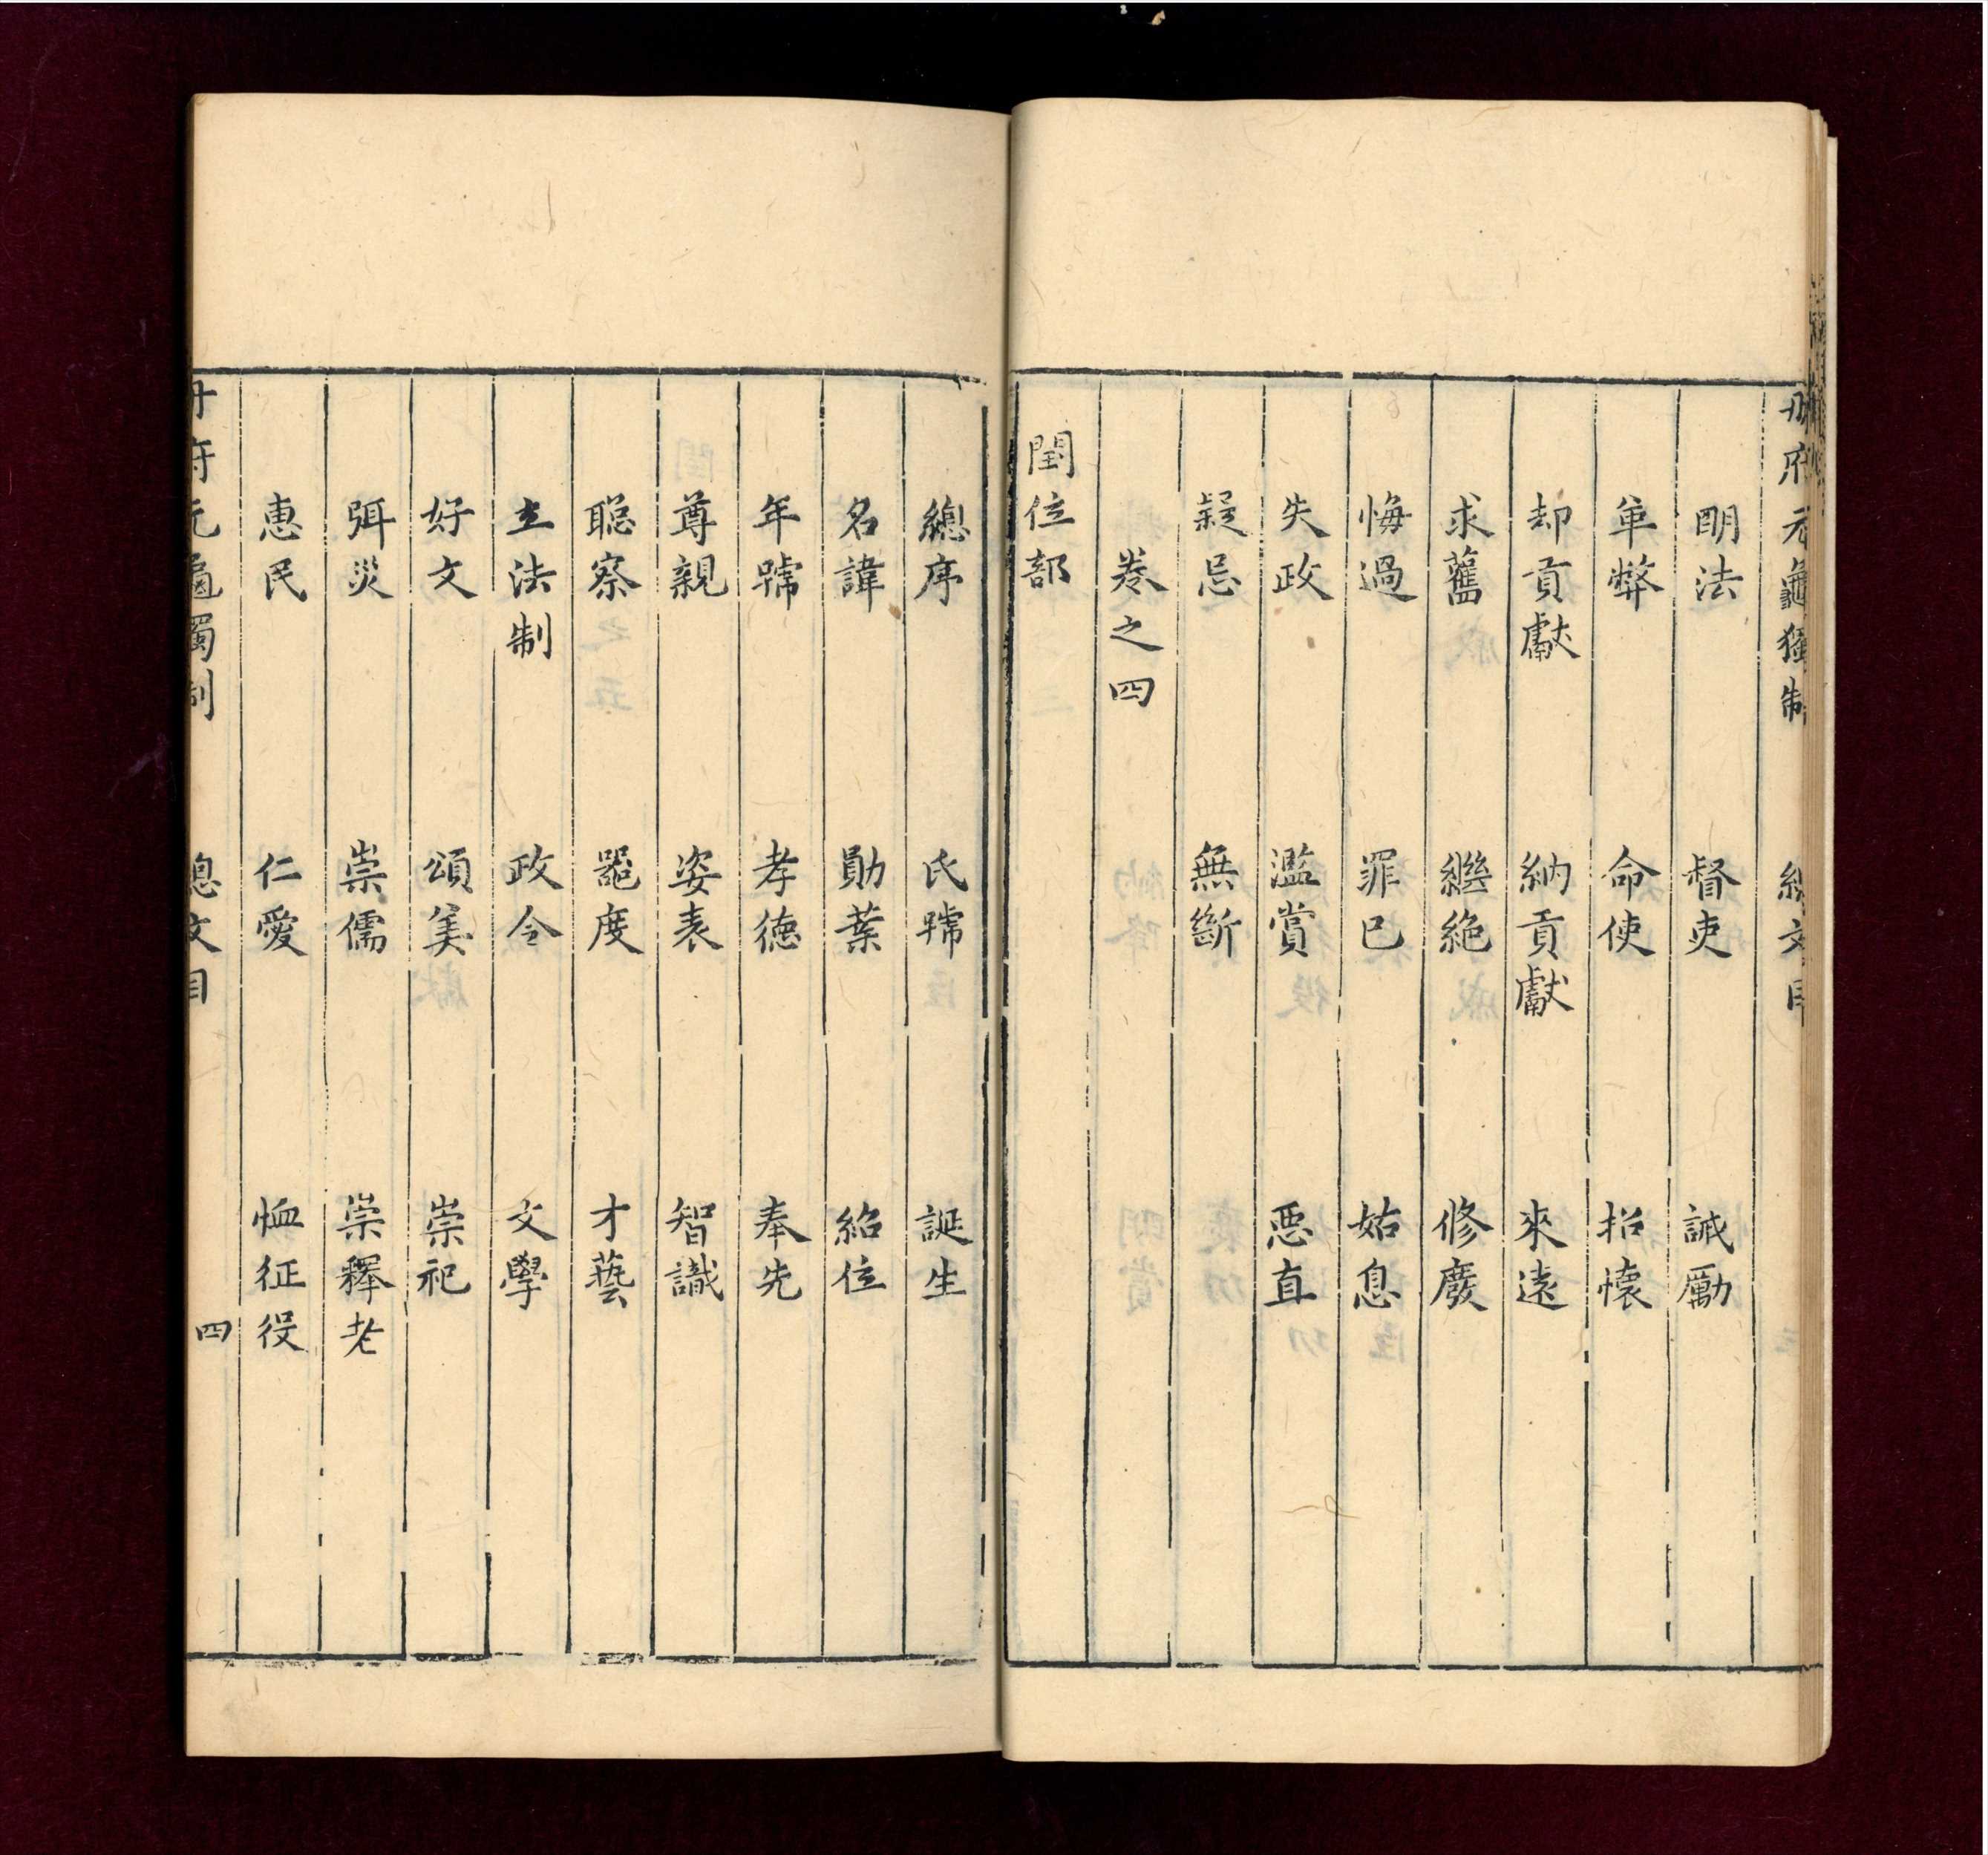 册府元龜獨制 總文目
明法 督吏 誡勵
革弊 命使 招懷
却貢獻 納貢獻 來遠
求舊 繼絶 修廢
悔過 罪已 姑息
失政 濫賞 惡直
疑忌 無斷
卷之四
閏位部
總序 氏號 誕生
名諱 勛業 紹位
年號 孝德 奉先
尊親 姿表 智識
聰察 器度 才藝
立法制 政令 文學
好文 頌美 崇祀
弭災 崇儒 崇釋老
惠民 仁愛 恤征役
册府元龜獨制 總文目 四